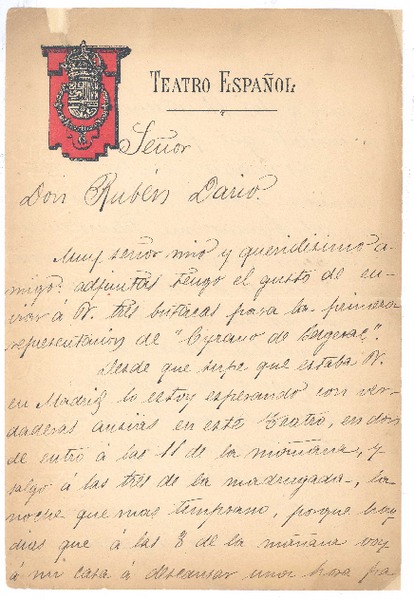 TEATRO ESPAÑOL
Señor
Don Rubén Dario.
Muy señor mio y queridisimo a-
migo: adjuntas tengo el gusto de en-
viar á V. tres butacas para la primera
representación de "Cyrano de Bergerac".
Desde que supe que estaba V.
en Madrid lo estoy esperando con ver-
daderas ansias en este Teatro, en don
de entro á las 11 de la mañana, y
salgo a las tres de la madrugada, la
noche que mas temprano, porque hay
dias que á las 8 de la mañana voy
á mi casa á descansar una hora pa